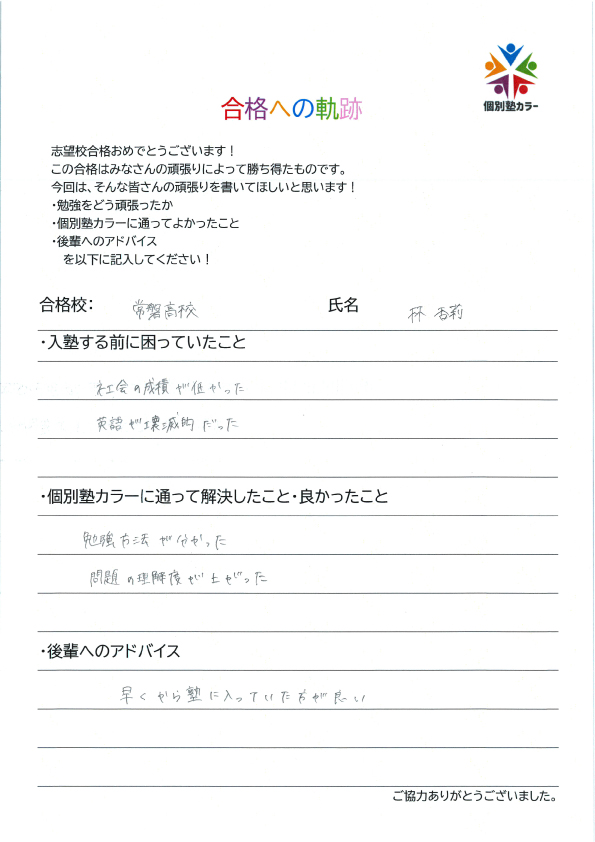 個別塾カラー
合格への軌跡
志望校合格おめでとうございます！
この合格はみなさんの頑張りによって勝ち得たものです。
今回は、そんな皆さんの頑張りを書いてほしいと思います！
・勉強をどう頑張ったか
・個別塾カラーに通ってよかったこと
・後輩へのアドバイス
を以下に記入してください！
合格校： 常磐高校 氏名 林 杏莉
・入塾する前に困っていたこと
社会の成績が低かった
英語が壊滅的だった
・個別塾カラーに通って解決したこと・良かったこと
勉強方法が分かった
問題の理解度が上がった
・後輩へのアドバイス
早くから塾に入っていた方が良い
ご協力ありがとうございました。